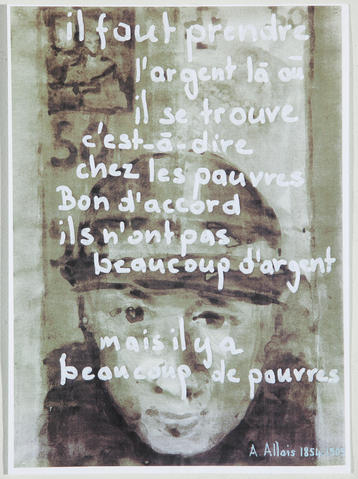 il faut prendre
l'argent là où
il se trouve
c'est-à-dire
chez les pauvres
Bon d'accord
ils n'ont pas
beaucoup d'argent
mais il y a
beaucoup de pauvres
A Allais 1854-1905